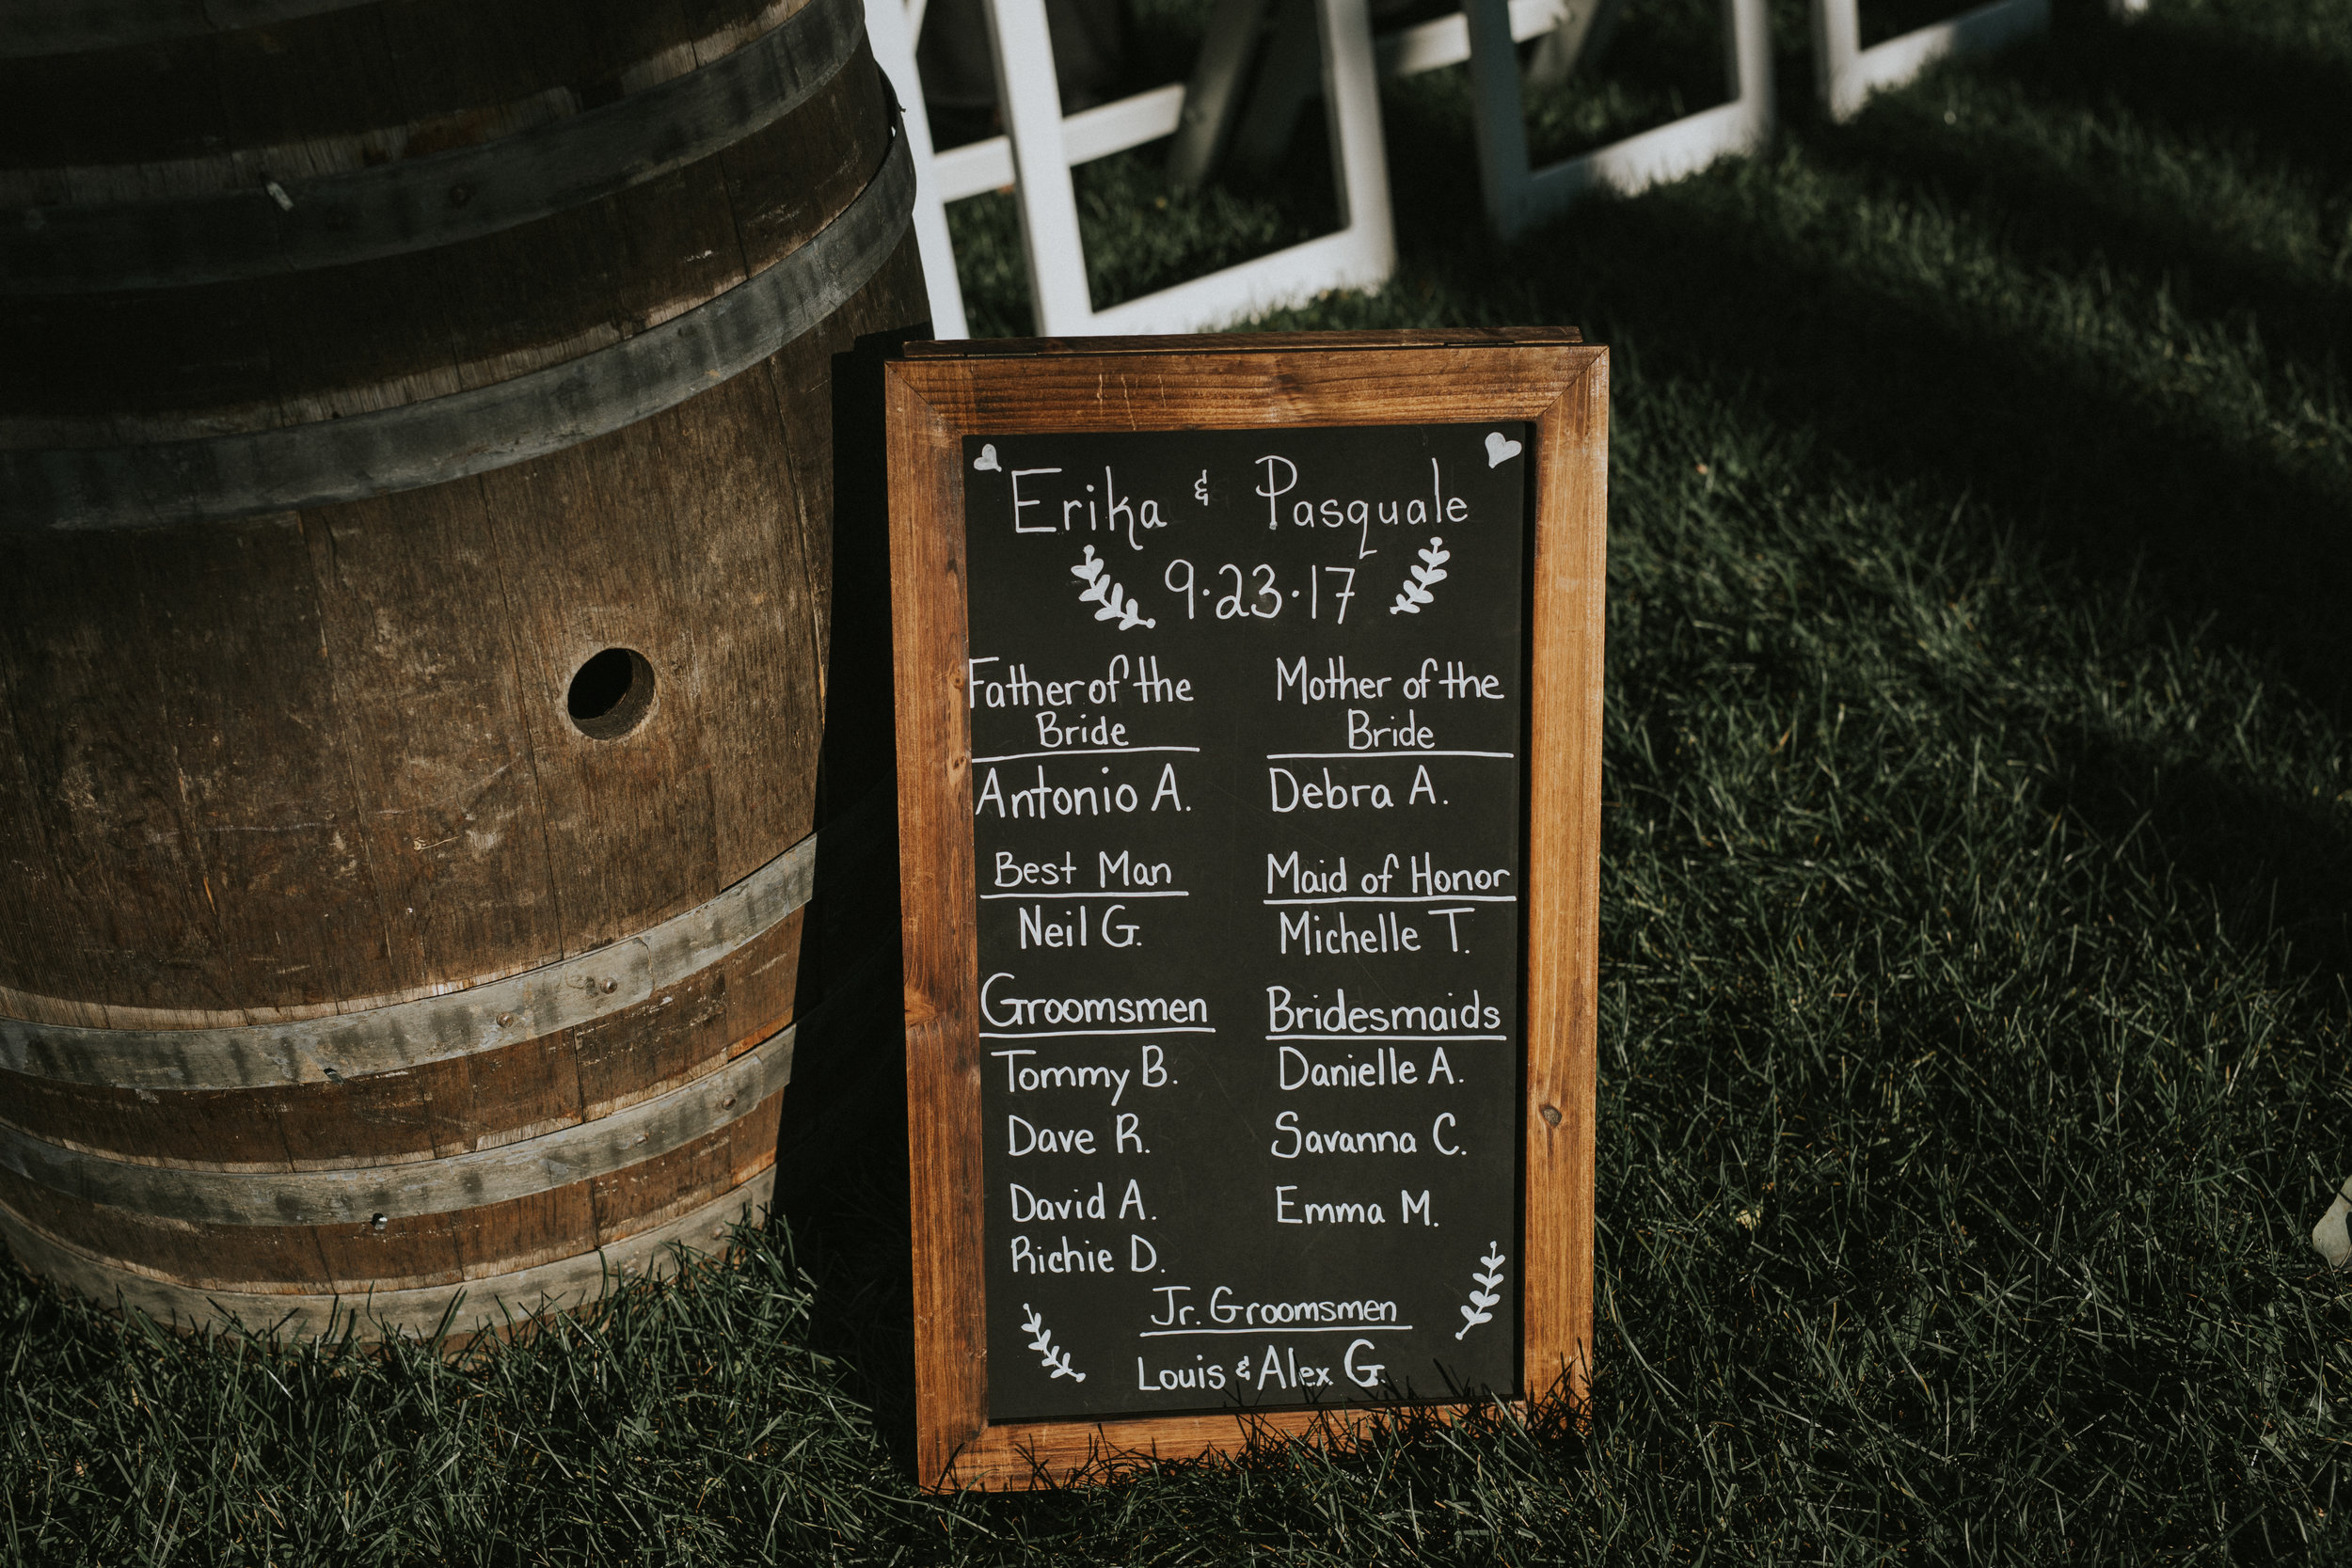 Erika & Pasquale
9·23·17
Father of the
Bride
Antonio A.
Mother of the
Bride
Debra A.
Best Man
Neil G.
Maid of Honor
Michelle T.
Groomsmen
Tommy B.
Dave R.
David A.
Richie D.
Bridesmaids
Danielle A.
Savanna C.
Emma M.
Jr. Groomsmen
Louis & Alex G.